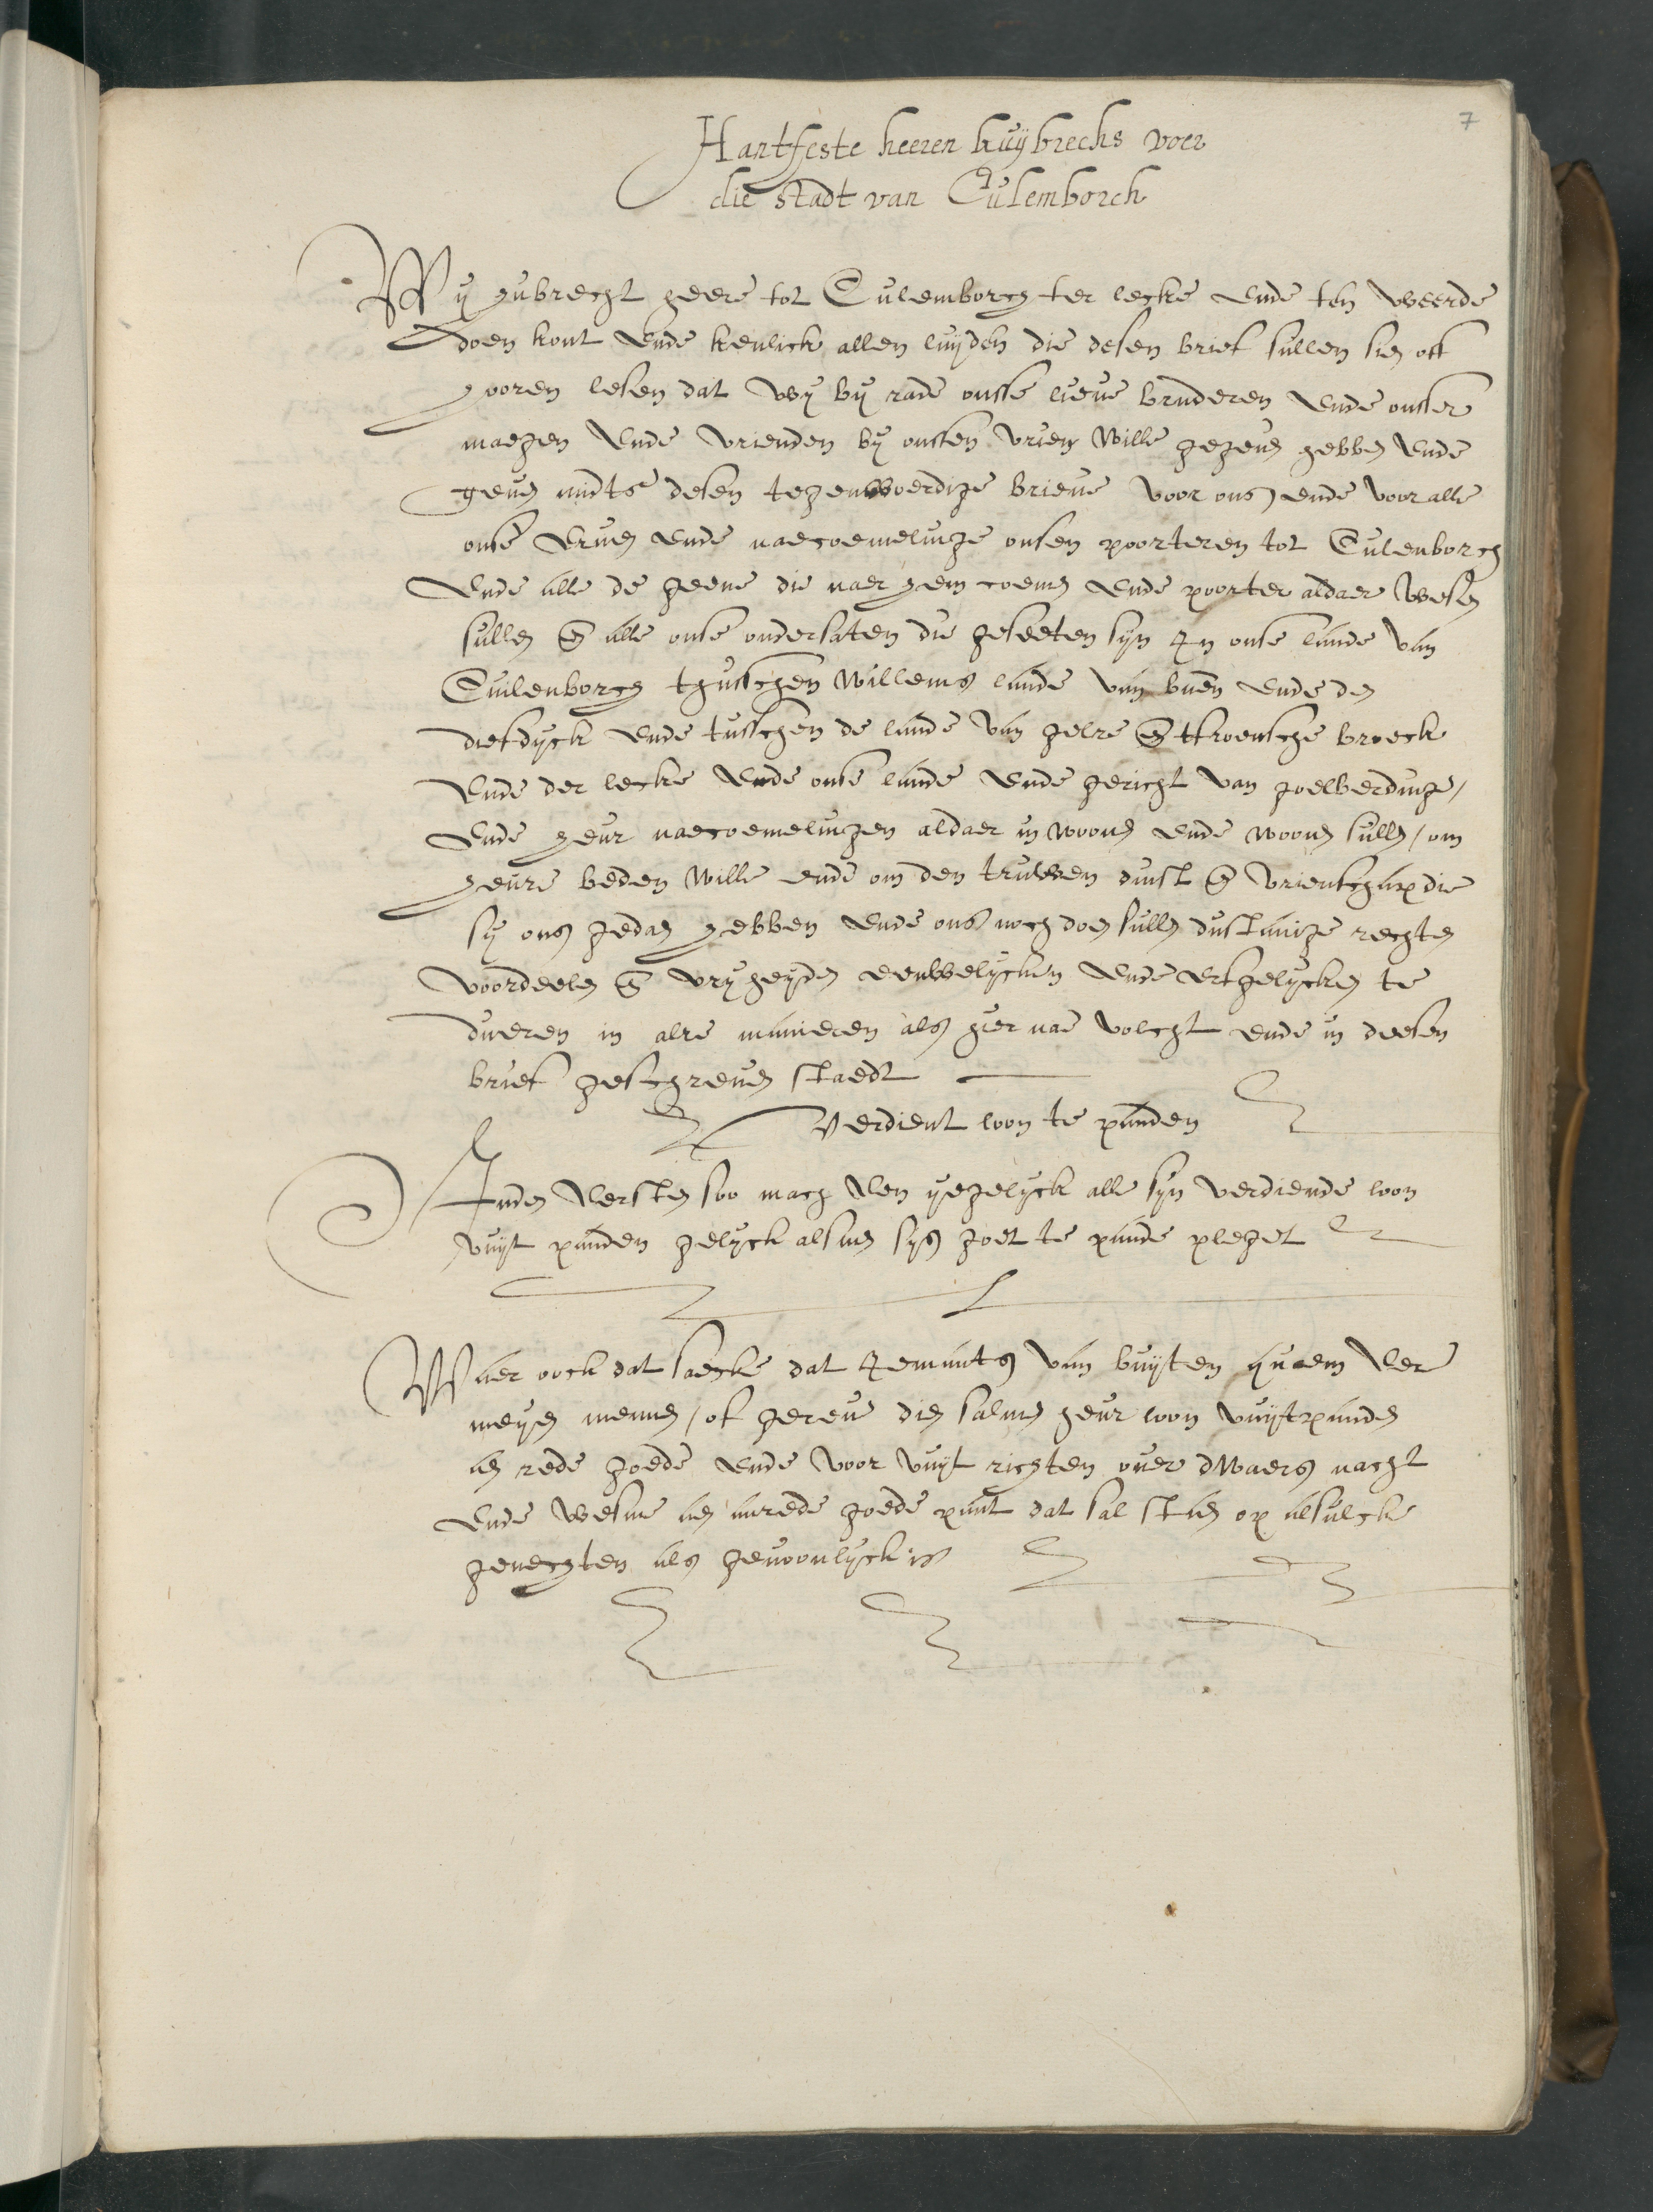 7
Hantfeste heeren huijbrechs voer
die stadt van Culemborch
Wij hubrecht heere tot Culemborch ter lecke ende ten weerde
doen kont ende kenlick allen luijden die desen brief sullen sien oft
hooren lesen dat wij bij rade onsse lieve bruderen ende onsser
maegen ende vrienden bij onssen vrien wille gegeven hebben ende
geven midts desen tegenwoerdige brieve voor ons ende voor alle
onse erven ende naecoemelinge onsen poorteren tot Culenborch
ende alle de geene die naer hem coemen ende poorter aldaer wesen
sullen en alle onse ondersaten die geseeten sijn In onse lande van
Culenborch thusschen Willems lande van buen ende den
diefdijck ende tusschen de lande van gelre en tkroensche broeck
ende der lecke ende onse lande ende gericht van goelberdinge /
ende heur naecoemelingen aldaer in woonen ende woonen sullen / om
heure beden wille ende om den truwen dinst en vrientschap die
sij ons gedaen hebben ende ons noch doen sullen dustanige rechten
voordeelen en vrijheijden eeuwelijcken ende erfgelijcken te
dueren in alre manieren als hier nae volcht ende in deesen
brief geschreven staedt
Verdient loon te panden
Inden Eersten soo mach Een ijegelijck alle sijn verdiende loon
vuijt panden gelijck alsmen sijs goet te pande pleget
Waer oock dat saecke dat Iemants van buijten quaem Eer
meijen mennen / of gereve dien salmen heur loon vuijtpanden
aen rede goede ende voor vuijt richten over dwaers nacht
ende wesme aen anrede goede pant dat sal staen op alsulcke
gevechten als gewoonlijck is